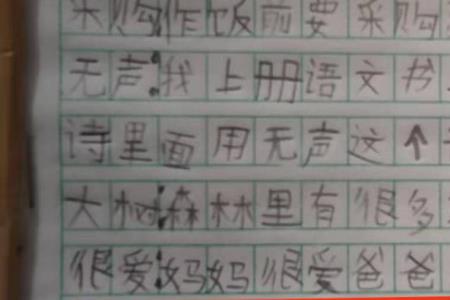 采购:作饭前要采购
无声:我上册语文书
诗里面用无声这个
大树:森林里有很多
很爱:妈妈很爱爸爸